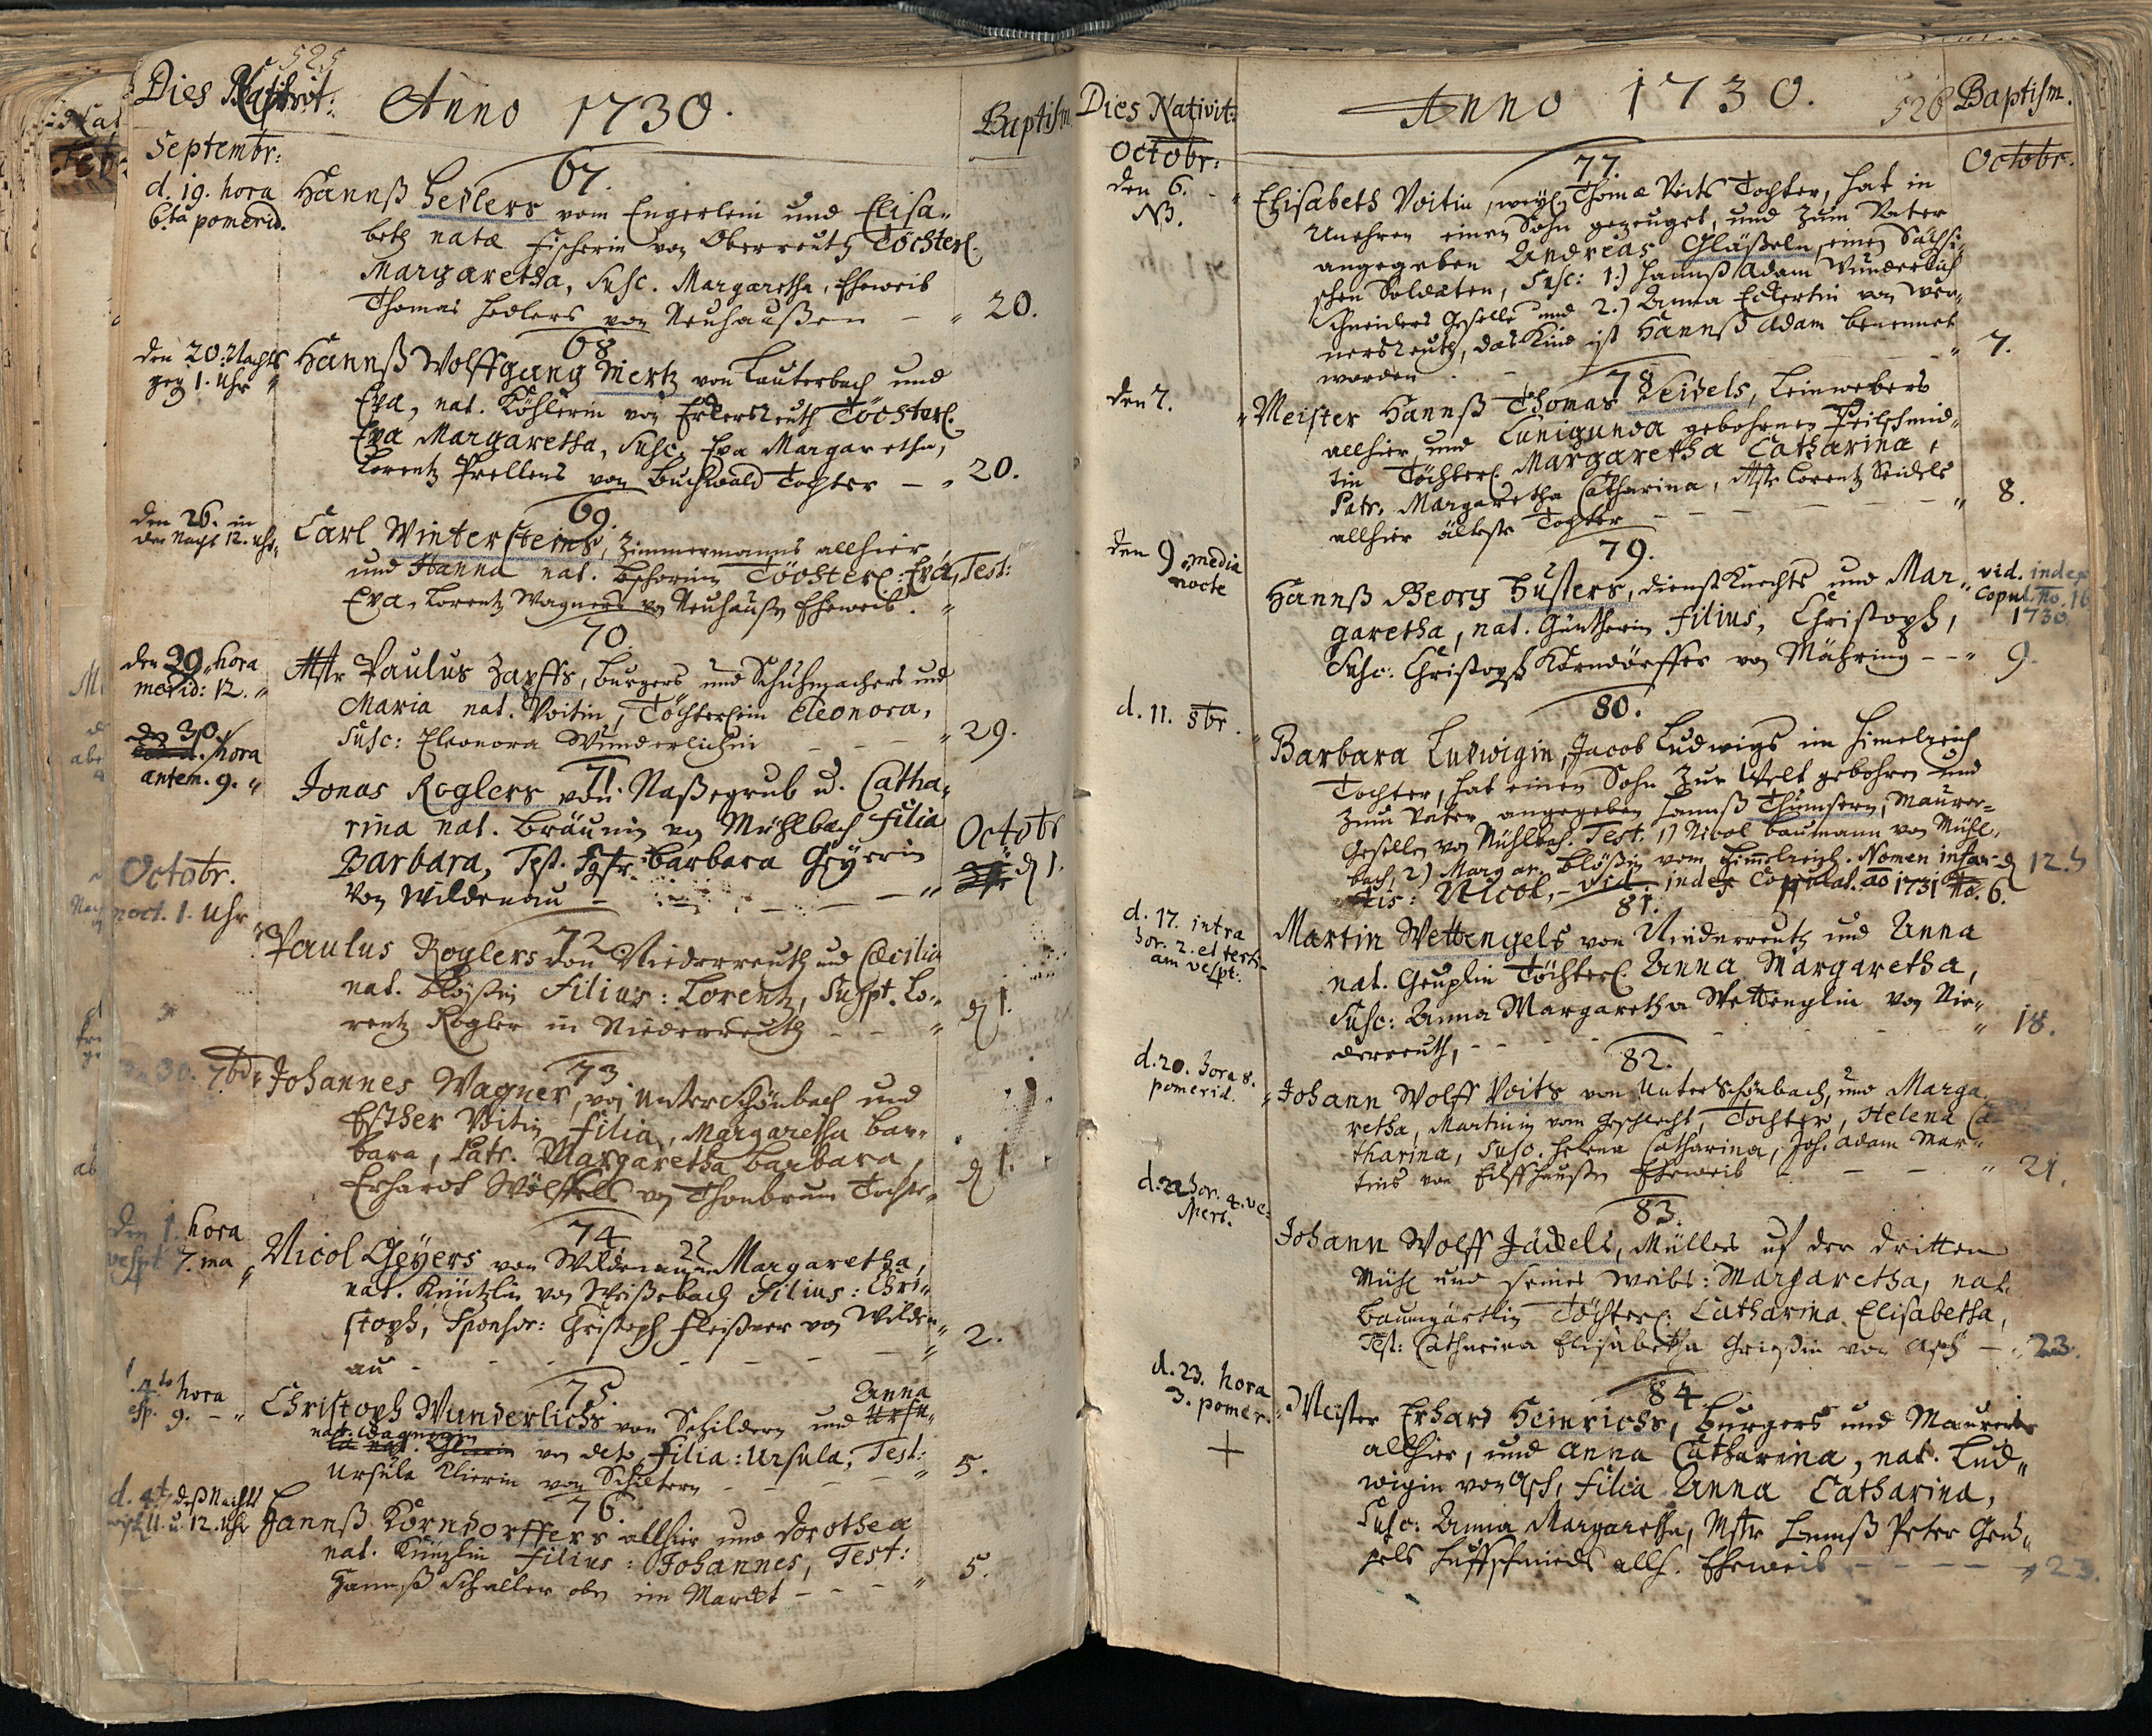 525
Dies Nativit:
Anno 1730.
Baptism
Septembr:
67.
d. 19. hora
6ta pomerid.
Hannß Hedlers vom Engerlein und Elisa-
beth natæ Fischerin von Oberreuth Töchterl.
Margaretha, Susc. Margaretha, Eheweib
Thomas Hedlers von Neuhaußen - " 20.
68
den 20. Nachts
geg 1. Uhr "
Hannß Wolffgang Mertz von Lauterbach und
Eva, nat. Köhlerin von Erkersreuth Töchterl.
Eva Margaretha, Susc. Eva Margaretha,
Lorentz Prellens von Buchwald Tochter - " 20.
69.
den 26. in
der Nacht 12. Uhr "
Carl Wintersteins, Zimmermanns allhier,
und Hanna nat. Töchterl: Eva, Test:
Eva, Lorentz Wagners von Neuhaußen Eheweib. "
70.
den 29. hora
merid: 12. "
Mstr Paulus Zapffs, Burgers und Schuhmachers und
Maria nat. Voitin, Töchterlein Eleonora,
Susc: Eleonora Wunderlichin - - " 29.
71.
den 30. hora
antem. 9. "
Jonas Roglers von Naßegrub u. Catha-
rina nat. Bräunin von Mühlbach Filia
Barbara, Test. Jgfr. Barbara Geyerin
von Wildenau - - - - "
Octobr
d 1.
Octobr.
noct. 1. Uhr "
72
Paulus Roglers von Niederreuth und Cæcilia
nat. Blößin Filius: Lorentz, Suspt. Lo-
rentz Rogler in Niederreuth - - " d 1.
73
30. 7br
Johannes Wagner, von Unterschönbach und
Esther Voitin Filia, Margaretha Bar-
bara, Patr. Margaretha Barbara,
Erhardt Wölffels von Thonbrunn Tochter d 1.
74
den 1. hora
vespt 7. ma "
Nicol Geyers von Wildenau u. Margaretha,
nat. Küntzlin von Steinbach Filius: Chri-
stoph, Sponsor: Christoph Fleißner von Wilden-
au - - - - - - " 2.
75.
hora
9. - "
Christoph Wunderlichs von Schildern und Anna
nat. Wagnerin von deto, Filia: Ursula, Test:
Ursula Klierin von Schildern - - - " 5.
76.
d. 4t. deß Nachts
11. u. 12. Uhr
Hannß Korndorffers allhier und Dorothea
nat. Künzlin Filius: Johannes, Test:
Hannß Schaller oben im Marckt - - - " 5.
Dies Nativit:
Anno 1730.
526
Baptism.
Octobr:
Octobr.
77.
den 6. - "
NB.
Elisabeth Voitin, weyl. Thomæ Voits Tochter, hat in
Unehren einen Sohn gezeuget, und zum Vater
angegeben Andreas Gläßeln, einen Sächsi-
schen Soldaten, Susc: 1.) Hannß Adam Wunderlich
Schneiders Geselle und 2.) Anna Eckertin von Wer-
nersreuth, das Kind ist Hannß Adam benennet
worden - - " 7.
78
den 7. "
Meister Hannß Thomas Seidels, Leinwebers
allhier und Cunigunda gebohrnen Peilschmid-
tin Töchterl. Margaretha Catharina,
Patr. Margaretha Catharina, Mstr Lorentz Seidels
allhier älteste Tochter - - - - " 8.
79.
den 9 media
nocte
Hannß Georg Husters, Dienst Knechts und Mar-
garetha, nat. Güntherin Filius, Christoph,
Susc: Christoph Korndörffer von Mähring - - " 9.
vid. index
Copul. No. 16
1730.
80.
d. 11. 8br. "
Barbara Ludwigin, Jacob Ludwigs im Himelreich
Tochter, hat einen Sohn zur Welt gebohren und
zum Vater angegeben Hannß Thumsern, Maurer-
Gesellen von Mühlbach. Test. 1) Nicol Baumann von Mühl-
bach, 2) Margar. Blößin vom Himelreich. Nomen infan-
tis: Nicol. - vid. index Copulat. ao 1731 No. 6.
d 12.
81.
d. 17. intra
hor. 2. et terti-
am vespt.
Martin Wettengels von Niederreuth und Anna
nat. Geuplin Töchterl. Anna Margaretha,
Susc: Anna Margaretha Wettenglin von Nie-
derreuth, - - - - - " 18.
82.
d. 20. hora 8.
pomerid. "
Johann Wolff Voits von Unterschönbach, und Marga-
retha, Martinin vom Geschlecht, Tochter, Helena Ca-
tharina, Susc. Helena Catharina, Joh. Adam Mar-
tins von Eilffhaußen Eheweib - - - " 21.
83.
d. 22 hor. 4. ve-
spert.
Johann Wolff Jäckels, Müllers uf der dritten
Mühl und seines Weibs: Margaretha, nat.
Baumgärtlin Töchterl: Catharina Elisabetha,
Test: Catharina Elisabetha Grießin von Asch - " 23.
84
d. 23. hora
3. pomer. "
+
Meister Erhard Heinrichs, Burgers und Maurers
allhier, und Anna Catharina, nat. Lud-
wigin von Asch, Filia Anna Catharina,
Susc: Anna Margaretha, Mstr Hannß Peter Geu-
pels Huffschmieds allh. Eheweib - - - - " 23.